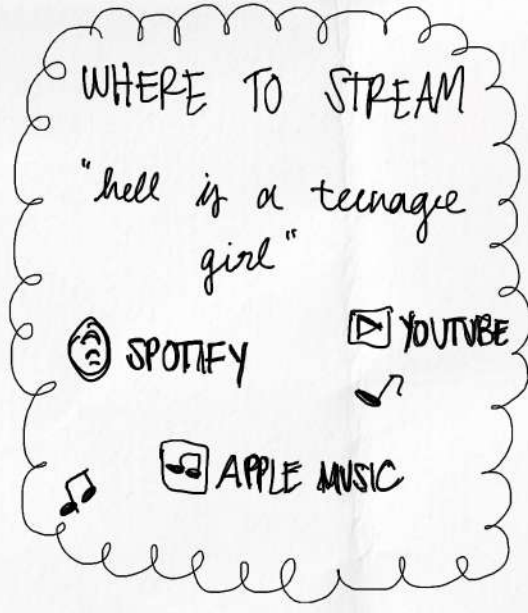 WHERE TO STREAM
"hell is a teenage
girl"
SPOTIFY
YOUTUBE
APPLE MUSIC